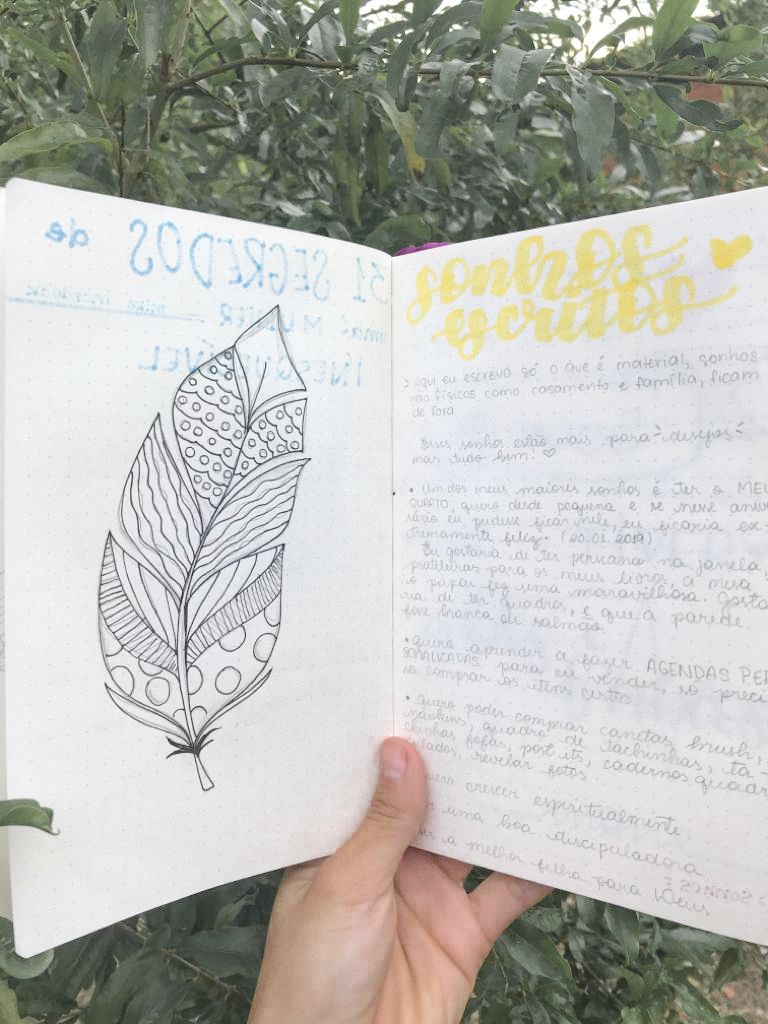 31 SEGREDOS de
uma MULHER
INESQUECÍVEL
sonhos
escritos
Aqui eu escrevo só o que é material, sonhos
não físicos como casamento e família, ficam
de fora
Esses sonhos estão mais para desejos
mas tudo bem! ♡
• Um dos meus maiores sonhos é ter o MEU
QUARTO, quero desde pequena e se nesse aniver
sário eu pudesse ficar nele, eu ficaria ex-
tremamente feliz. (20.01.2019)
Eu gostaria de ter persiana na janela,
pratileiras para os meus livros, a mesa
o papai fez uma maravilhosa. Gosta
ria de ter quadros, e que a parede
fosse branca ou salmão
• Quero aprender a fazer AGENDAS PER
SONALIZADAS, para eu vender, só preci
so comprar os itens certos
• Quero poder comprar canetas brush,
nankins, quadro de tachinhas, ta-
chinhas fofas, post its, cadernos quadri
culados, revelar fotos
quero crescer espiritualmente
uma boa discipuladora
a melhor filha para Deus
SONHOS